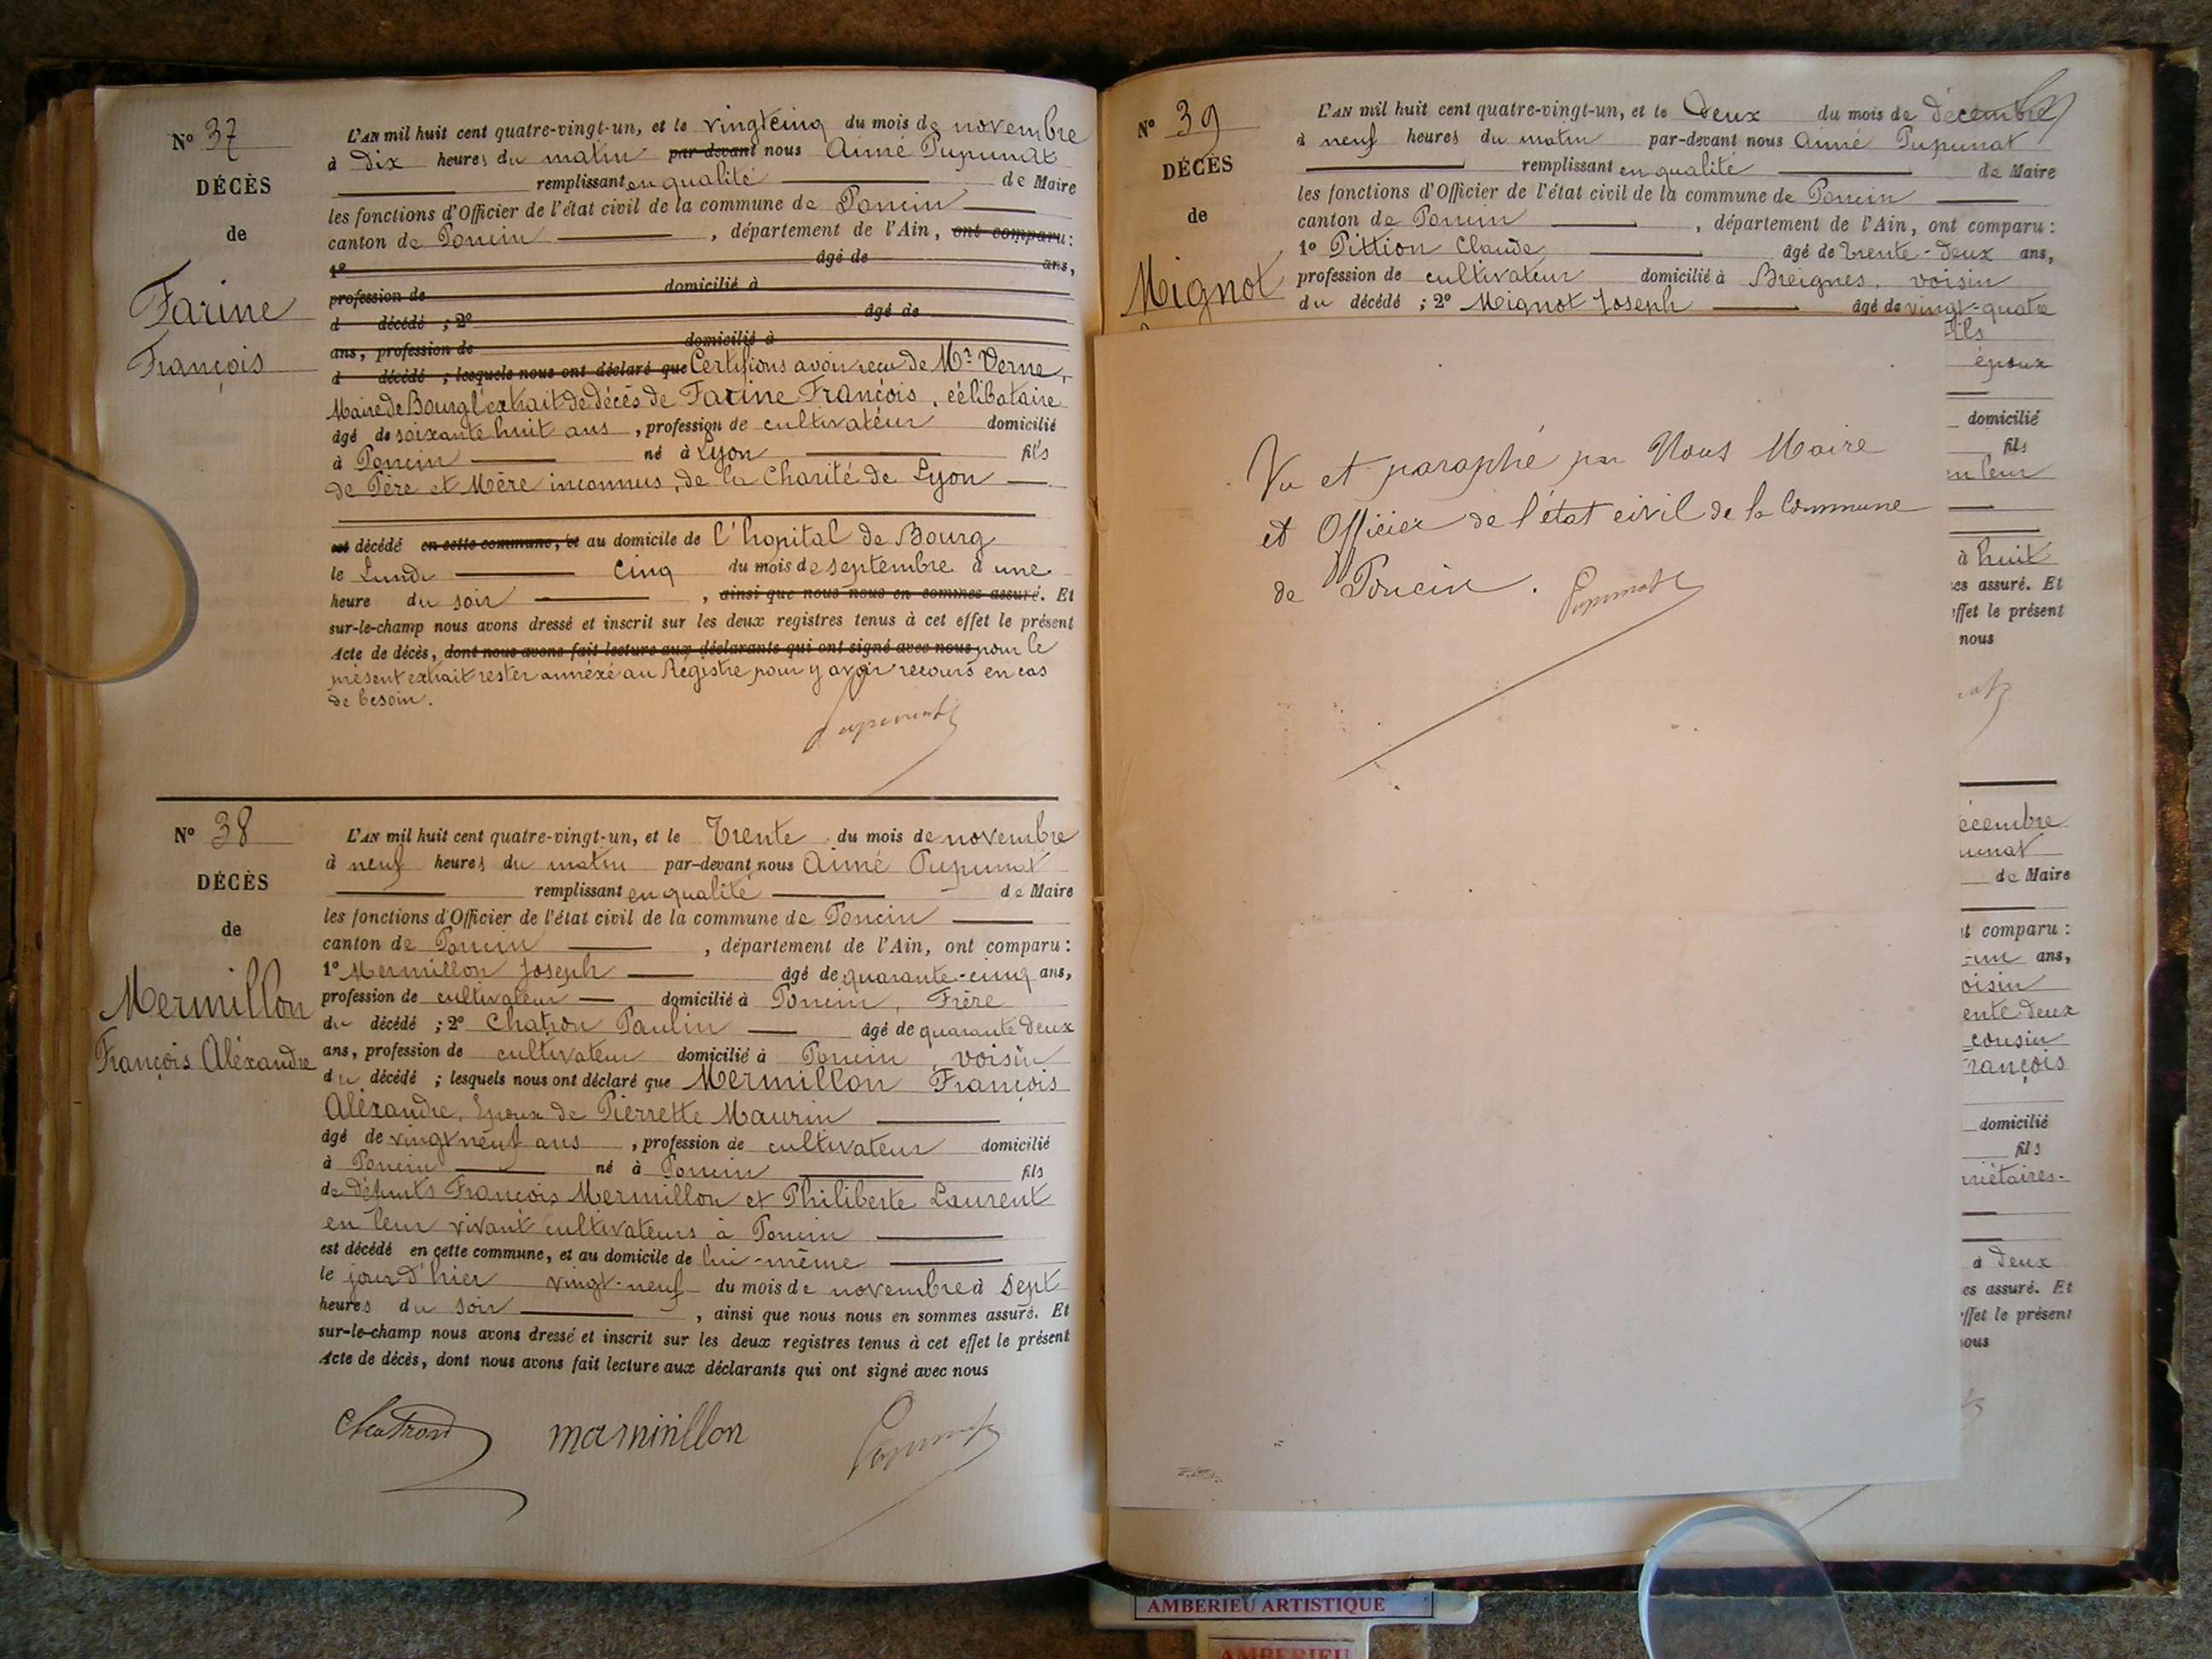 N° 37
DÉCÈS
de
Farine
François
L'AN mil huit cent quatre-vingt-un, et le vingtcinq du mois de novembre
à dix heures du matin par-devant nous Aimé Pupunat
remplissant en qualité de Maire
les fonctions d'Officier de l'état civil de la commune de Poncin
canton de Poncin, département de l'Ain, ont comparu :
1° âgé de ans,
profession de domicilié à
d décédé ; 2° âgé de
ans, profession de domicilié à
d décédé ; lesquels nous ont déclaré que Certifions avoir reçu de Mr Verne,
Maire de Bourg l'extrait de décès de Farine François, célibataire
âgé de soixante huit ans, profession de cultivateur domicilié
à Poncin né à Lyon fils
de Père et Mère inconnus, de la Charité de Lyon
est décédé en cette commune, et au domicile de l'hopital de Bourg
le Lundi cinq du mois de septembre à une
heure du soir, ainsi que nous nous en sommes assuré. Et
sur-le-champ nous avons dressé et inscrit sur les deux registres tenus à cet effet le présent
Acte de décès, dont nous avons fait lecture aux déclarants qui ont signé avec nous pour le
présent extrait rester annéxé au Régistre pour y avoir recours en cas
de besoin.
Pupunat
N° 38
DÉCÈS
de
Mermillon
François Aléxandre
L'AN mil huit cent quatre-vingt-un, et le Trente du mois de novembre
à neuf heures du matin par-devant nous Aimé Pupunat
remplissant en qualité de Maire
les fonctions d'Officier de l'état civil de la commune de Poncin
canton de Poncin, département de l'Ain, ont comparu :
1° Mermillon Joseph âgé de quarante-cinq ans,
profession de cultivateur domicilié à Poncin, Frère
du décédé ; 2° Chatron Paulin âgé de quarante deux
ans, profession de cultivateur domicilié à Poncin, voisin
du décédé ; lesquels nous ont déclaré que Mermillon François
Aléxandre, Epoux de Pierrette Maurin
âgé de vingt neuf ans, profession de cultivateur domicilié
à Poncin né à Poncin fils
de défunts François Mermillon et Philiberte Laurent
en leur vivant cultivateurs à Poncin
est décédé en cette commune, et au domicile de lui-même
le jour d'hier vingt-neuf du mois de novembre à sept
heures du soir, ainsi que nous nous en sommes assuré. Et
sur-le-champ nous avons dressé et inscrit sur les deux registres tenus à cet effet le présent
Acte de décès, dont nous avons fait lecture aux déclarants qui ont signé avec nous
Chatron marminllon Pupunat
N° 39
DÉCÈS
de
Mignot
L'AN mil huit cent quatre-vingt-un, et le Deux du mois de décembre
à neuf heures du matin par-devant nous Aimé Pupunat
remplissant en qualité de Maire
les fonctions d'Officier de l'état civil de la commune de Poncin
canton de Poncin, département de l'Ain, ont comparu :
1° Pittion Claude âgé de trente-deux ans,
profession de cultivateur domicilié à Breignes, voisin
du décédé ; 2° Mignot Joseph âgé de vingt-quatre
fils
époux
domicilié
fils
en leur
à huit
es assuré. Et
effet le présent
nous
Vu et paraphé par Nous Maire
et Officier de l'état civil de la Commune
de Poncin. Pupunat
écembre
unat
de Maire
t comparu :
un ans,
oisin
ente deux
cousin
rançois
domicilié
fils
riétaires
à deux
es assuré. Et
effet le présent
nous
AMBERIEU ARTISTIQUE
AMBERIEU